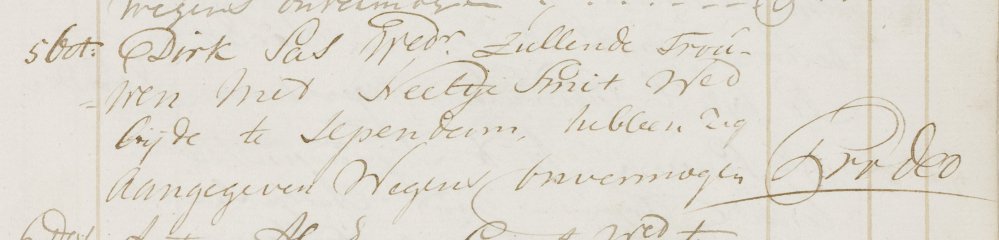 wegens onvermogen
5 Oct: Dirk Sas Wedr. Zullende Trou-
wen met Neeltje Smit Wed
bijde te Ilpendam, hebben zig
aangegeven Wegens onvermogen Pro deo
Wed